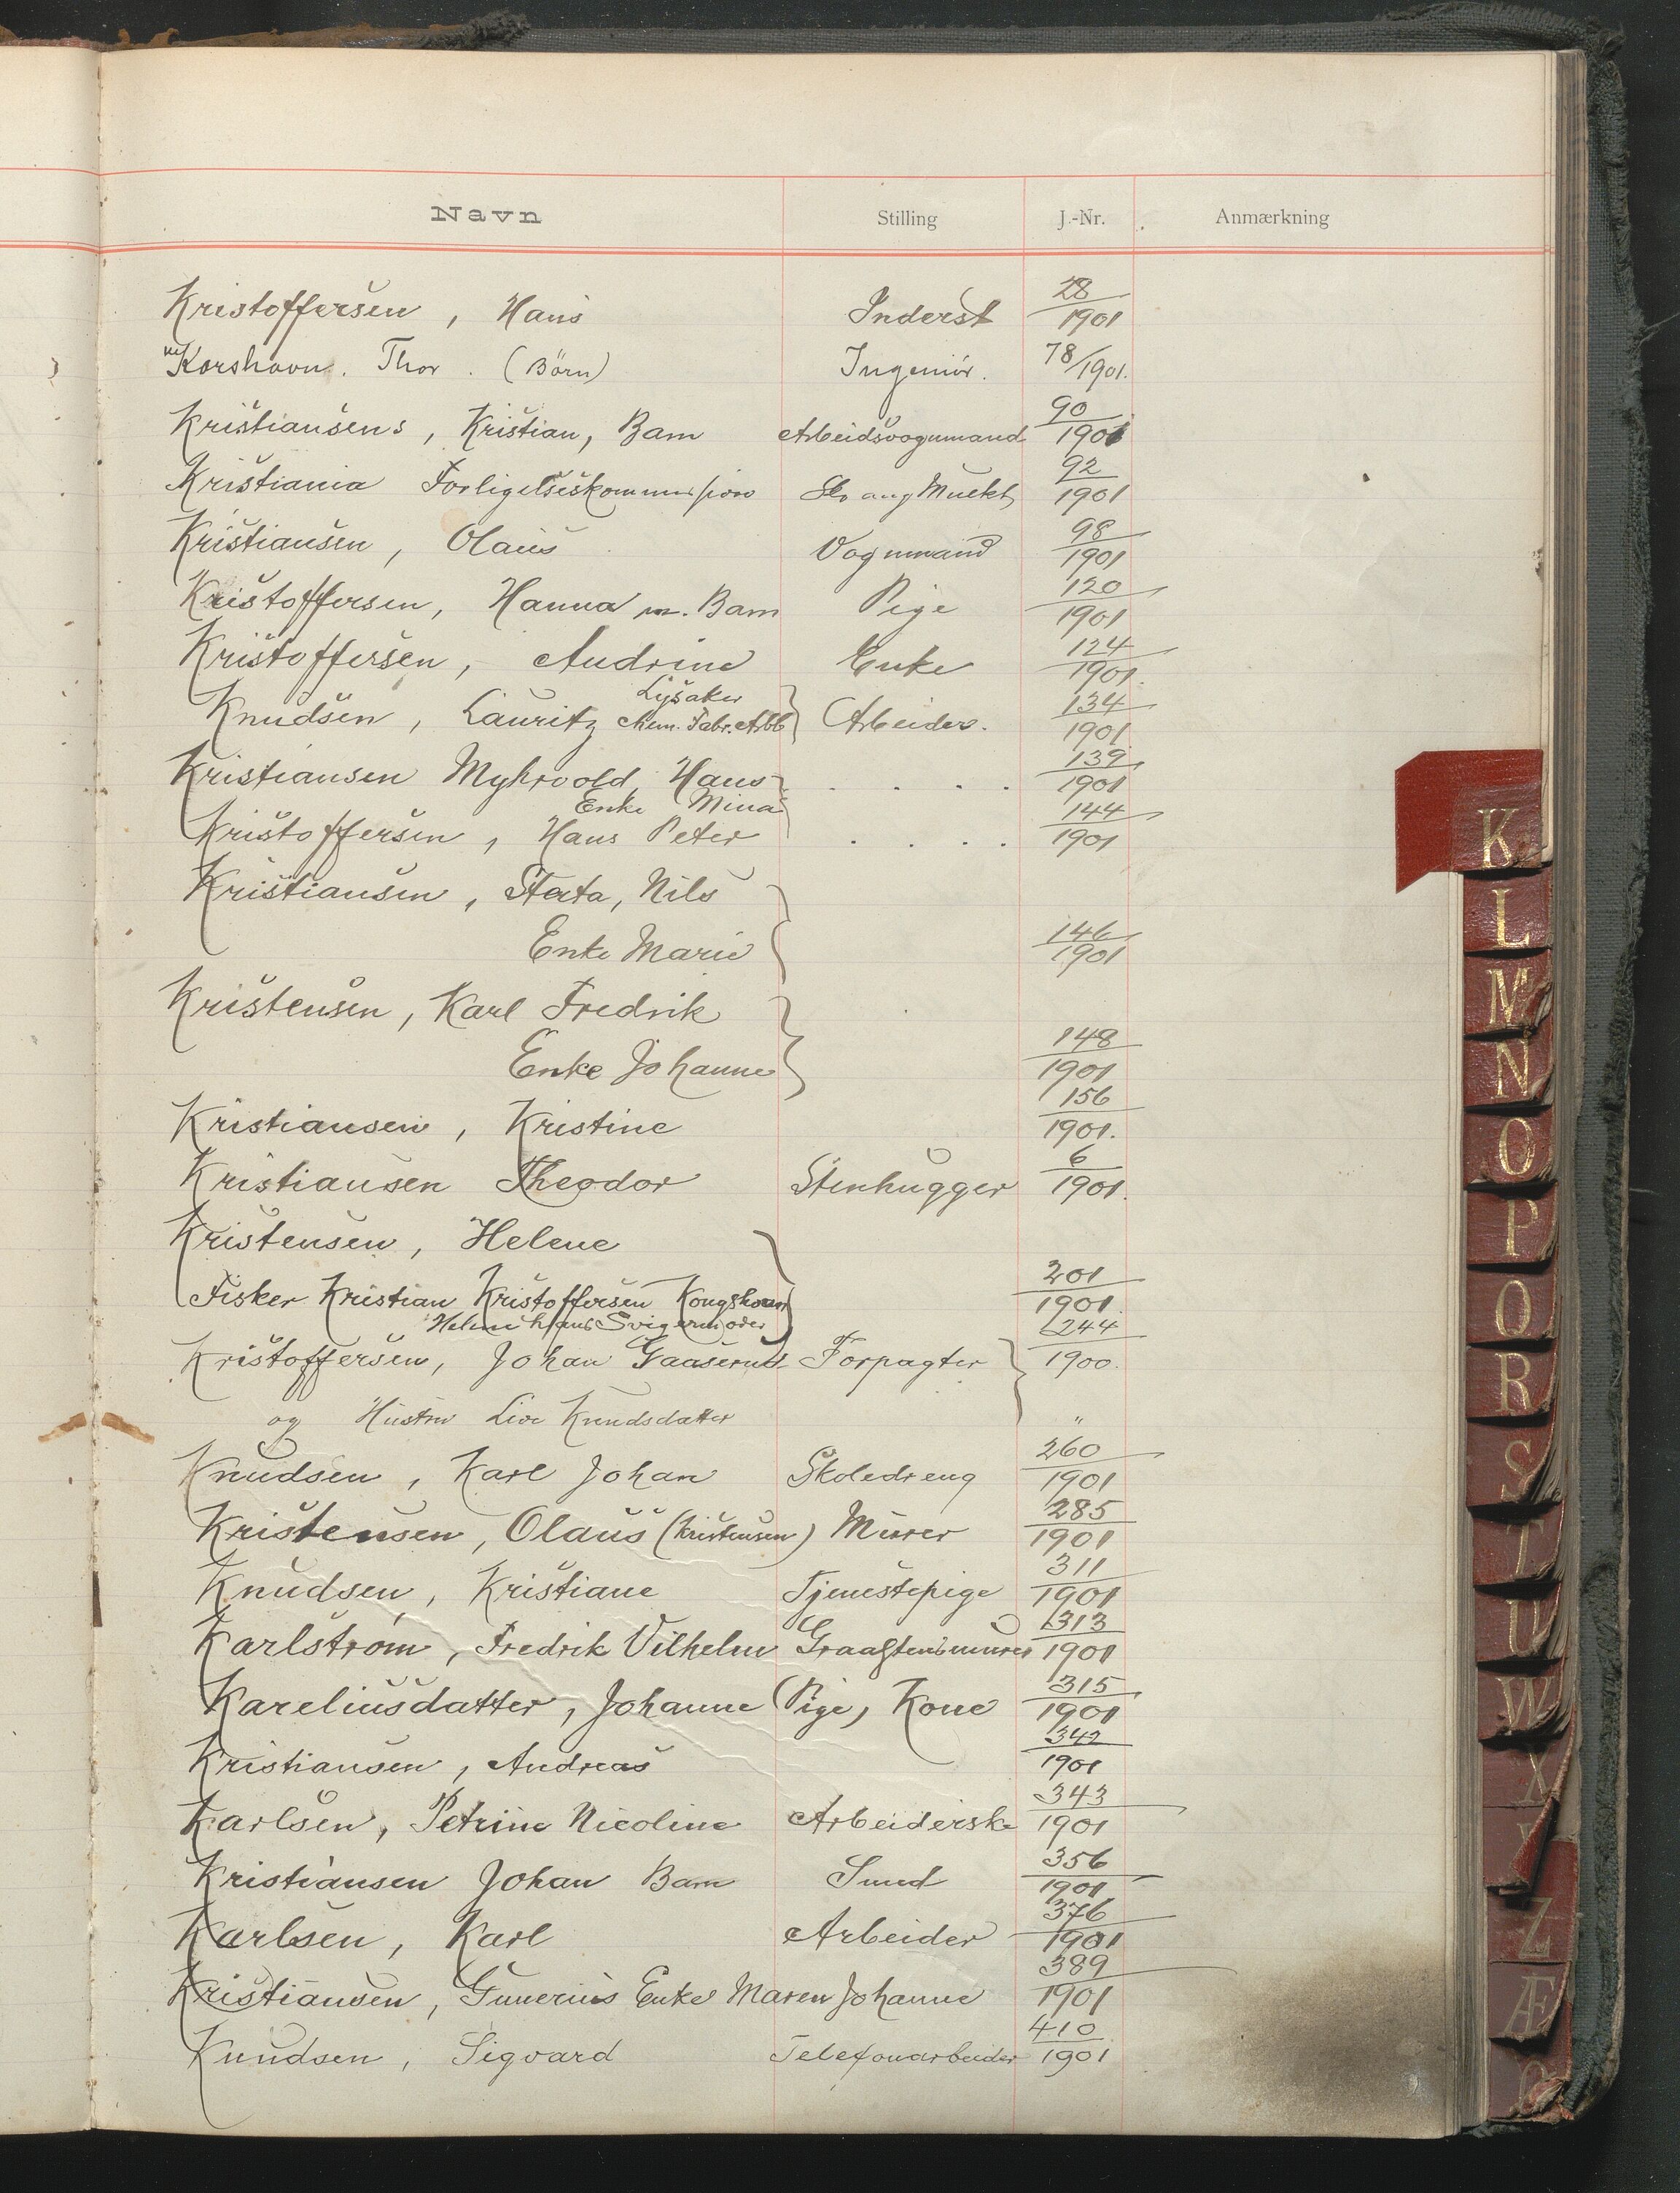 Navn Stilling J.-Nr. Anmærkning
Kristoffersen, Hans Inderst 28/1901
Korshavn. Thor. (Börn) Ingeniör. 78/1901.
Kristiansens, Kristian, Barn Arbeidsvognmand 90/1901
Kristiania Forligelseskommission 92/1901
Kristiansen, Olaus Vognmand 98/1901
Kristoffersen, Hanna m. Barn Pige 120/1901
Kristoffersen, Andrine Enke 124/1901.
Lysaker
Knudsen, Lauritz chem. Fabr. Arbb } Arbeider. 134/1901
Kristiansen Myhrvold, Hans . . . . 139/1901
Enke Mina
Kristoffersen, Hans Peter . . . . 144/1901
Kristiansen, Stata, Nils
Enke Marie } 146/1901
Kristensen, Karl Fredrik
Enke Johanne } 148/1901
Kristiansen, Kristine 156/1901.
Kristiansen Theodor Stenhugger 6/1901.
Kristensen, Helene
Fisker Kristian Kristoffersen Kongshavn 201/1901.
Helene hans Svigermoder
Kristoffersen, Johan Gaaserud Forpagter } 244/1900.
og Hustru Live Knudsdatter "
Knudsen, Karl Johan Skoledreng 260/1901
Kristensen, Olaus (Kristensen) Murer 285/1901
Knudsen, Kristiane Tjenestepige 311/1901
Karlstrøm, Fredrik Vilhelm Graastensmurer 313/1901
Kareliusdatter, Johanne (Pige) Kone 315/1901
Kristiansen, Andreas 342/1901
Karlsen, Petrine Nicoline Arbeiderske 343/1901
Kristiansen Johan Barn Smed 356/1901
Karlsen, Karl Arbeider 376/1901
Kristiansen, Gunerius Enke Maren Johanne 389/1901
Knudsen, Sigvard Telefonarbeider 410/1901
K
L
M
N
O
P
Q
R
S
T
U
W
X
Z
Æ
Ø